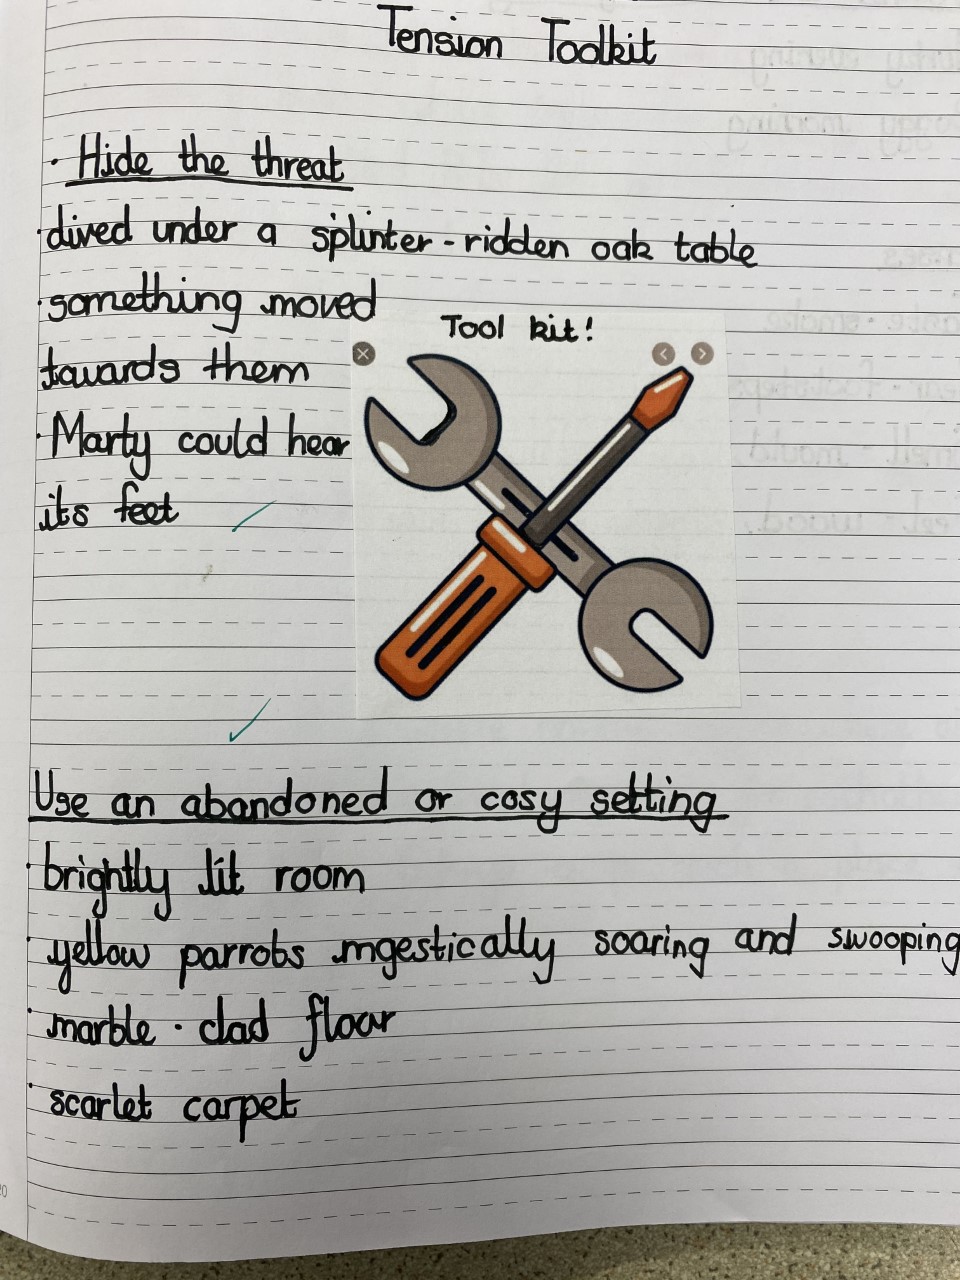 Tension Toolkit
· Hide the threat
·dived under a splinter-ridden oak table
·something moved
towards them
Tool kit!
·Marty could hear
its feet
Use an abandoned or cosy setting
·brightly lit room
·yellow parrots mgestically soaring and swooping
·marble · clad floor
·scarlet carpet